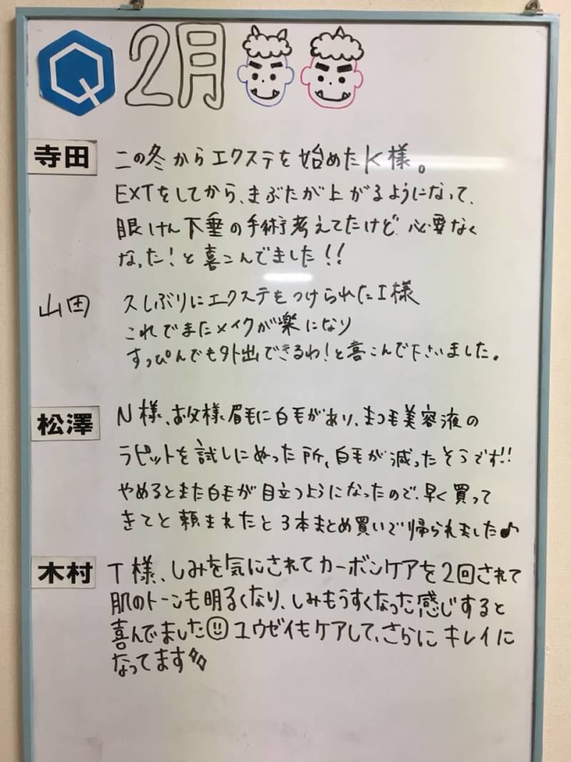 Q 2月
寺田 この冬からエクステを始めたK様。
EXTをしてから、まぶたが上がるようになって、
眼けん下垂の手術考えてたけど 必要なく
なった!と喜こんでました!!
山田 久しぶりにエクステをつけられたI様
これでまたメイクが楽になり
すっぴんでも外出できるわ!と喜こんで下さいました。
松澤 N様、お父様、眉毛に白毛があり、まつ毛美容液の
ラピットを試しにぬった所、白毛が減ったそうです!!
やめるとまた白毛が目立つようになったので、早く買って
きてと頼まれたと3本まとめ買いで帰られました♪
木村 T様、しみを気にされてカーボンケアを2回されて
肌のトーンも明るくなり、しみもうすくなった感じすると
喜んでました☺ ユウゼイもケアして、さらに キレイに
なってます